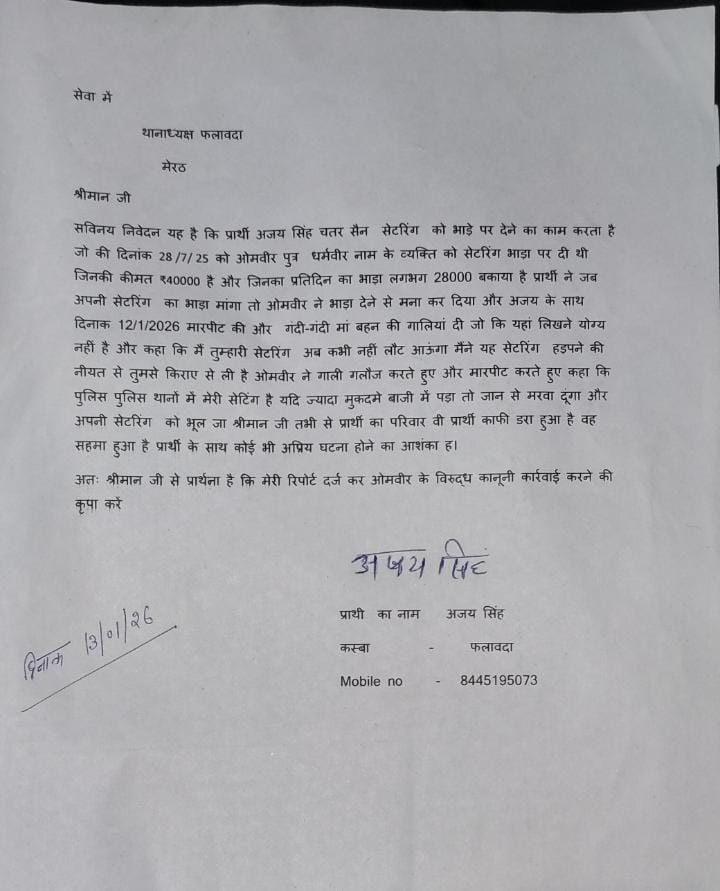 सेवा में
थानाध्यक्ष फलावदा
मेरठ
श्रीमान जी
सविनय निवेदन यह है कि प्रार्थी अजय सिंह चतर सैन सेटरिंग को भाड़े पर देने का काम करता है
जो की दिनांक 28 /7/ 25 को ओमवीर पुत्र धर्मवीर नाम के व्यक्ति को सेटरिंग भाड़ा पर दी थी
जिनकी कीमत ₹40000 है और जिनका प्रतिदिन का भाड़ा लगभग 28000 बकाया है प्रार्थी ने जब
अपनी सेटरिंग का भाड़ा मांगा तो ओमवीर ने भाड़ा देने से मना कर दिया और अजय के साथ
दिनाक 12/1/2026 मारपीट की और गंदी-गंदी मां बहन की गालियां दी जो कि यहां लिखने योग्य
नहीं है और कहा कि मैं तुम्हारी सेटरिंग अब कभी नहीं लौट आऊंगा मैंने यह सेटरिंग हड़पने की
नीयत से तुमसे किराए से ली है ओमवीर ने गाली गलौज करते हुए और मारपीट करते हुए कहा कि
पुलिस पुलिस थानों में मेरी सेटिंग है यदि ज्यादा मुकदमे बाजी में पड़ा तो जान से मरवा दूंगा और
अपनी सेटरिंग को भूल जा श्रीमान जी तभी से प्रार्थी का परिवार वी प्रार्थी काफी डरा हुआ है वह
सहमा हुआ है प्रार्थी के साथ कोई भी अप्रिय घटना होने का आशंका ह।
अतः श्रीमान जी से प्रार्थना है कि मेरी रिपोर्ट दर्ज कर ओमवीर के विरुद्ध कानूनी कार्रवाई करने की
कृपा करें
अजय सिंह
प्राथी का नाम अजय सिंह
दिनाक 13/01/26
कस्बा - फलावदा
Mobile no - 8445195073